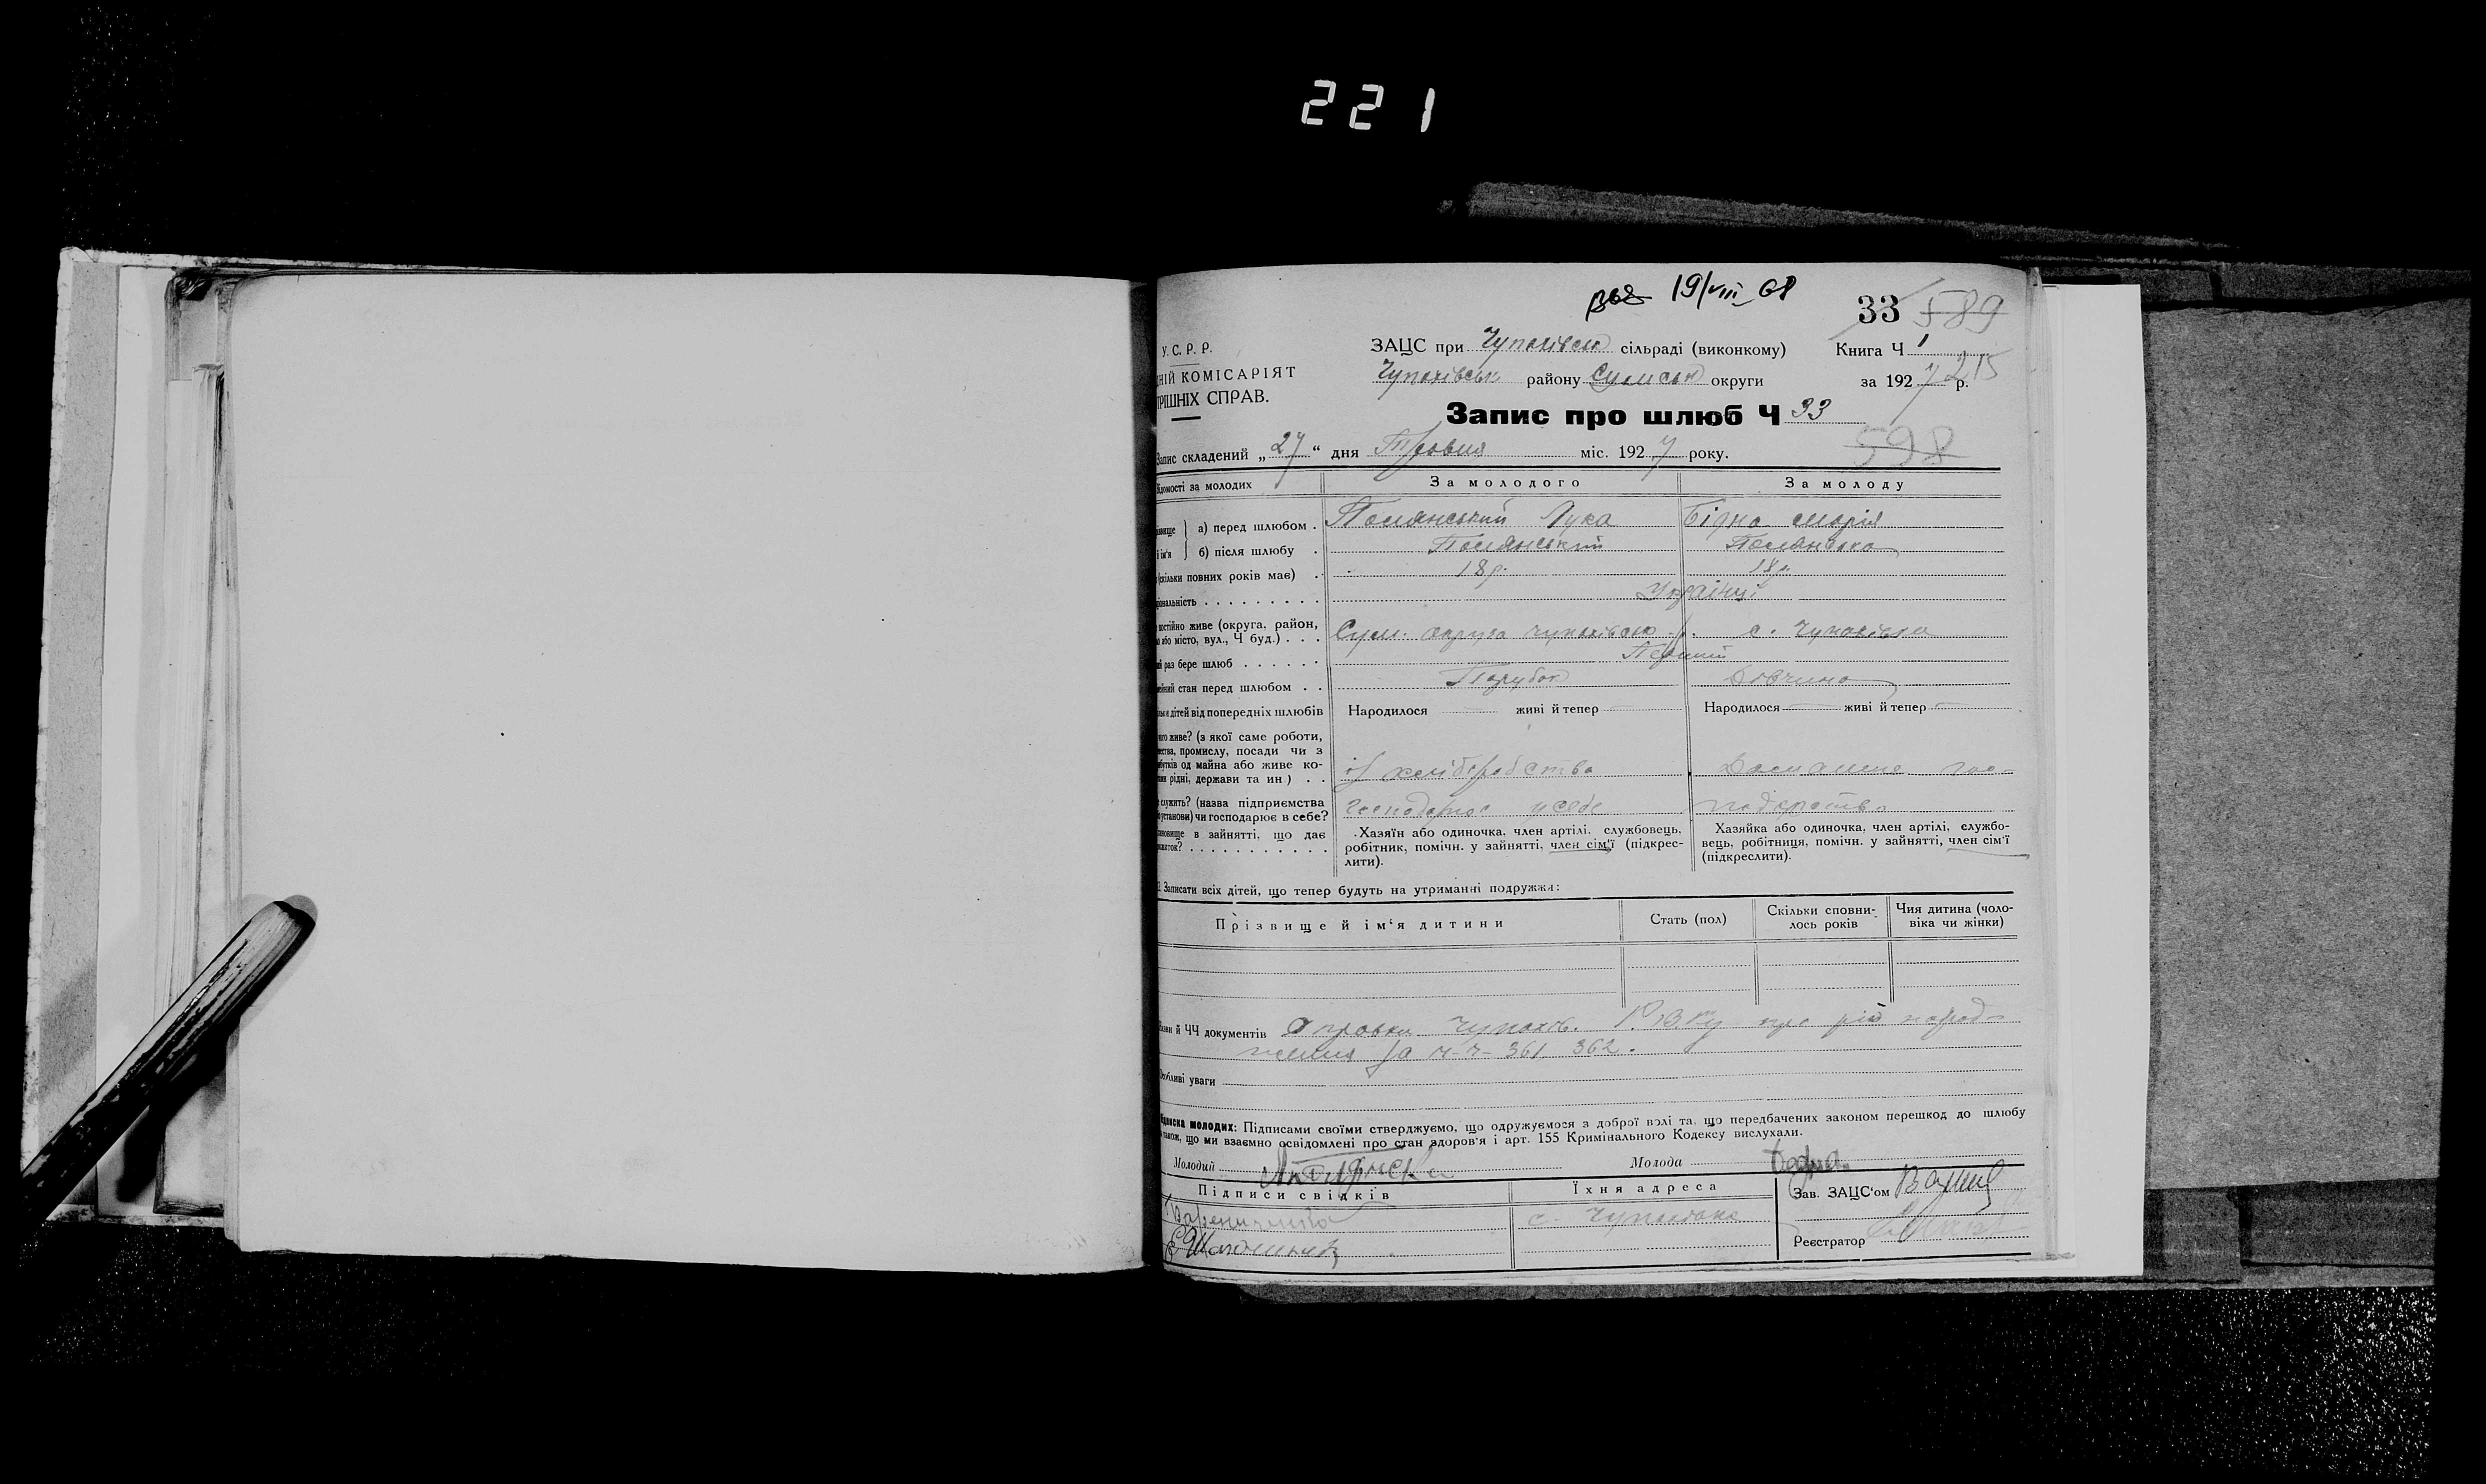 221
19/VIII 68
33 589
У.С.Р.Р.
ЗАЦС при Чупахівськ сільраді (виконкому) Книга Ч 1
НІЙ КОМІСАРІЯТ
Чупахівськ району Сумськ округи за 1927 р. 215
РІШНІХ СПРАВ.
Запис про шлюб Ч 33
598
Запис складений „27“ дня Травня міс. 1927 року.
домості за молодих За молодого За молоду
а) перед шлюбом . Полянський Лука Бідна Марія
б) після шлюбу . Полянський Полянська
(скільки повних років має) . 18 р. 18 р.
ціональність . . . . . . . . . Українці
постійно живе (округа, район,
або місто, вул., Ч буд.) . . . Сум. округа Чупахівськ р. с. Чупахівка
раз бере шлюб . . . . . . Перший
стан перед шлюбом . . Парубок Дівчина
дітей від попередніх шлюбів Народилося живі й тепер Народилося живі й тепер
живе? (з якої саме роботи,
промислу, посади чи з
од майна або живе ко-
рідні, держави та ин.) . . із хліборобства Домашнє гос-
служить? (назва підприємства
установи) чи господарює в себе? господарює у себе подарство
в зайнятті, що дає
. . . . . . . . . . .
Хазяїн або одиночка, член артілі, службовець,
робітник, помічн. у зайнятті, член сім'ї (підкрес-
лити).
Хазяйка або одиночка, член артілі, службо-
вець, робітниця, помічн. у зайнятті, член сім'ї
(підкреслити).
Записати всіх дітей, що тепер будуть на утриманні подружжя:
Прізвище й ім'я дитини Стать (пол) Скільки сповни-
лось років Чия дитина (чоло-
віка чи жінки)
й ЧЧ документів Справки Чупахів. РВКу про рік народ-
ження за ч-ч- 361 362.
Особливі уваги
Підписка молодих: Підписами своїми стверджуємо, що одружуємося з доброї волі та, що передбачених законом перешкод до шлюбу
також, що ми взаємно освідомлені про стан здоров'я і арт. 155 Кримінального Кодексу вислухали.
Молодий Молода Бідна
Підписи свідків Їхня адреса Зав. ЗАЦС'ом
с. Чупахівка
Реєстратор